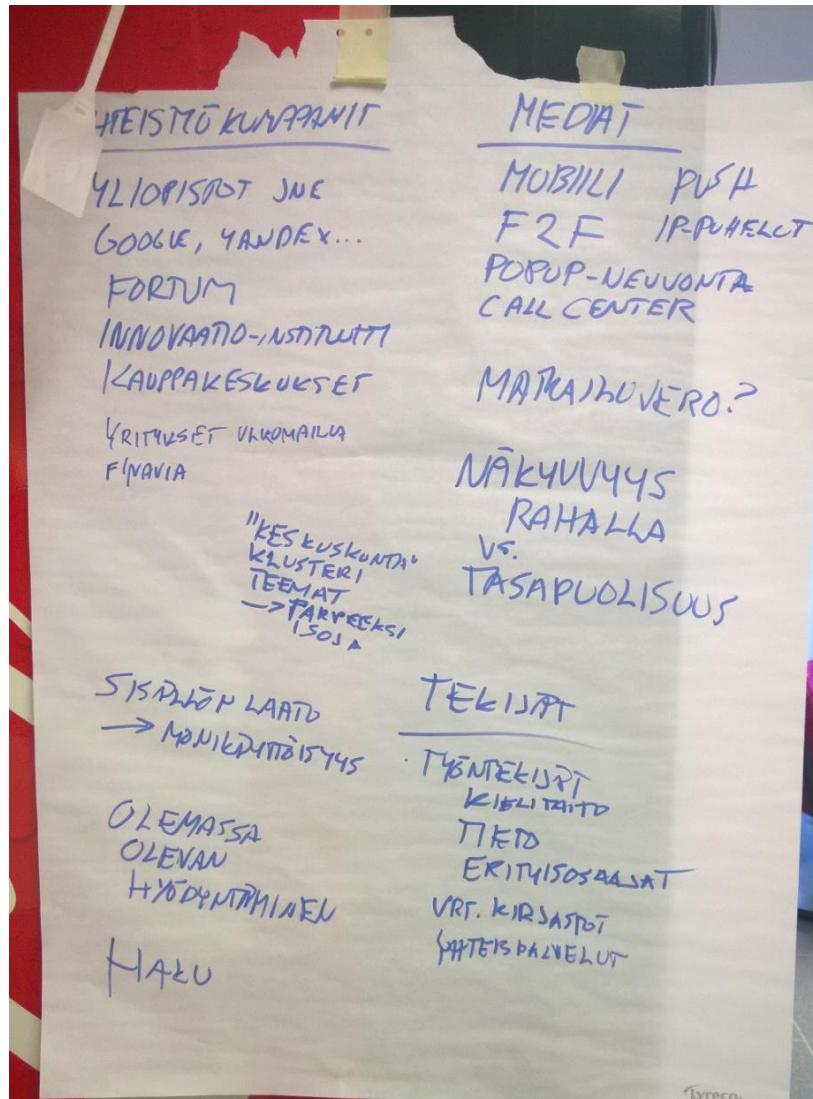 HTEISTYÖKUMPPANIT
YLIOPISTOT JNE
GOOGLE, YANDEX...
FORTUM
INNOVAATIO-INSTITUUTTI
KAUPPAKESKUKSET
YRITYKSET ULKOMAILLA
FINAVIA
"KESKUSKUNTA"
KLUSTERI
TEEMAT
→ TARPEEKSI
ISOJA
SISÄLLÖN LAATU
→ MONIKÄYTTÖISYYS
OLEMASSA
OLEVAN
HYÖDYNTÄMINEN
HAKU
MEDIAT
MOBIILI PUSH
F2F IP-PUHELUT
POPUP-NEUVONTA
CALL CENTER
MATKAILUVERO?
NÄKYVYYS
RAHALLA
VS.
TASAPUOLISUUS
TEKIJÄT
TYÖNTEKIJÄT
KIELITAITO
TIETO
ERITYISOSAAJAT
VRT. KIRJASTOT
YHTEISPALVELUT
Lyreco